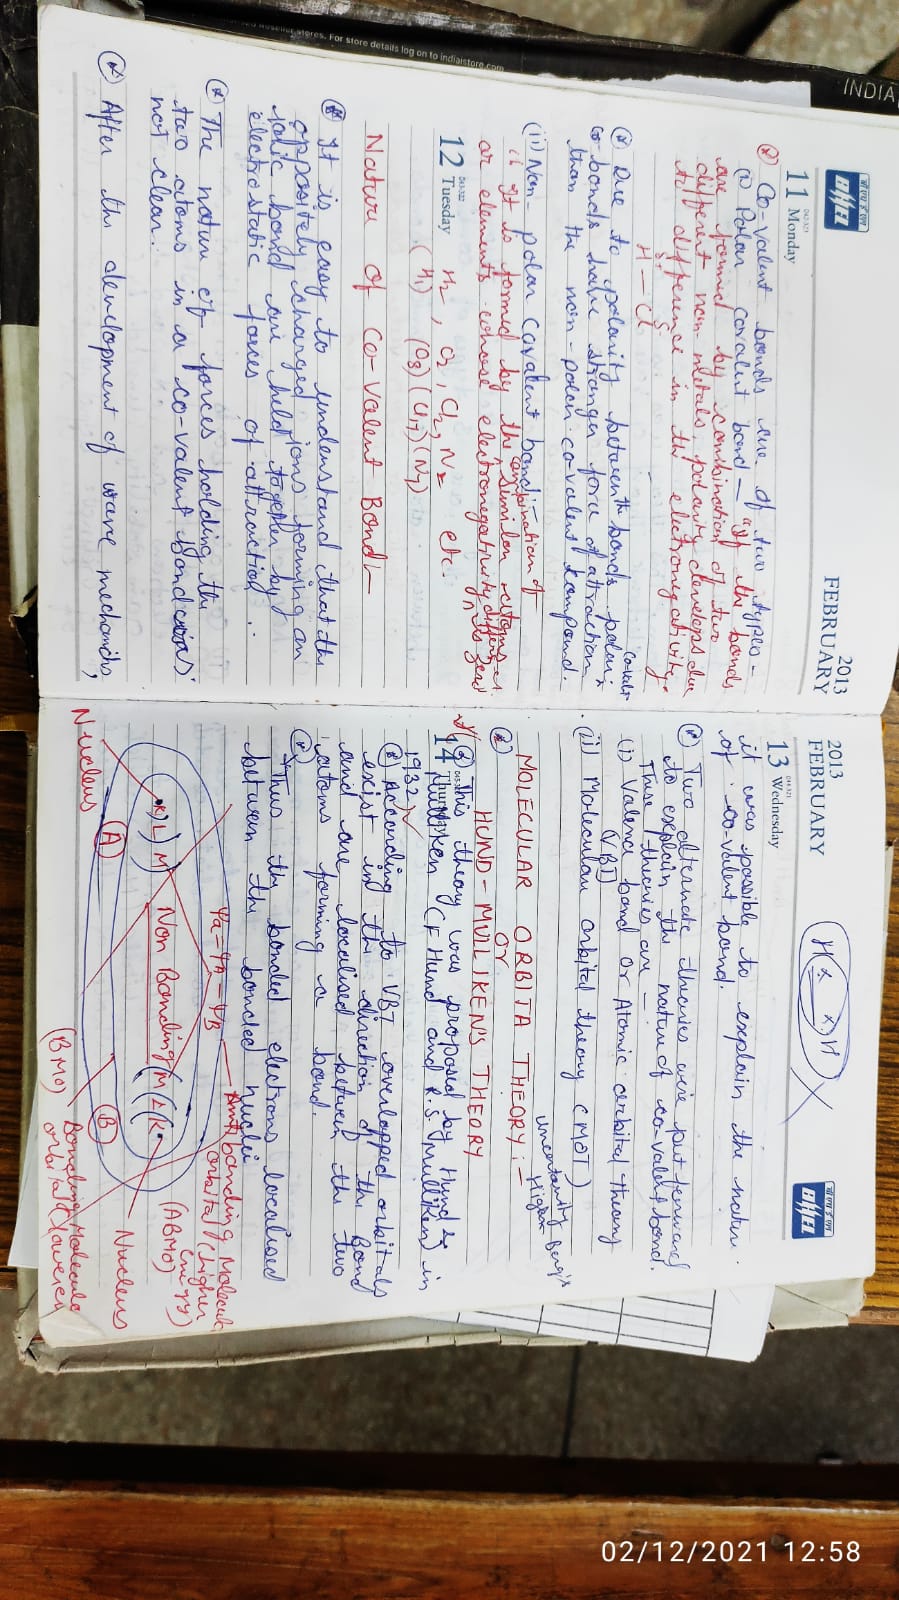 nost.com/stores. For store details log on to indiaistore.com
INDIA
बी एच ई एल
BHEL
2013
FEBRUARY
11 Monday
Co-valent bonds are of two types -
(i) Polar covalent bond - as the bonds
are formed by combination of two
different non-metals, polarity develops due
to difference in the electronegativity.
H - Cl
Due to polarity between the bonds polar covalent
bonds have stronger force of attraction
than the non-polar co-valent compound.
(ii) Non-polar Covalent bond
It is formed by the combination of similar atoms
or elements whose electronegativity difference is zero
12 Tuesday
H₂, O₂, Cl₂, N₂ etc.
(H₁) (O₈) (Cl₁₇) (N₇)
Nature of Co-valent Bond:-
It is easy to understand that the
oppositely charged ions forming an
ionic bond are held together by
electrostatic forces of attraction.
The nature of forces holding the
two atoms in a co-valent bond was
not clear.
After the development of wave mechanics,
2013
FEBRUARY
13 Wednesday
H x x H
बी एच ई एल
BHEL
it was possible to explain the nature
of co-valent bond.
Two alternate theories were put forward
to explain the nature of co-valent bond.
These theories are -
(i) Valence bond or Atomic orbital theory
(V.B.T)
(ii) Molecular orbital theory (MOT)
MOLECULAR ORBITA THEORY :-
OR
HUND-MULIKEN'S THEORY
14 Thursday
This theory was proposed by Hund &
Mulliken (F Hund and R.S. Mulliken) in
1932
According to VBT overlapped orbitals
exist in the direction of the Bond
and are localised between the two
atoms forming a bond.
Thus the bonded electrons localised
between the bonded nuclei
Ψa = ΨA - ΨB
Antibonding Molecul
orbital (higher
energy)
(ABMO)
K) L) M)
Non Bonding
(M (L (K
Nucleus
(A)
(B)
Nucleus
(BMO)
Bonding Molecula
orbital (lower